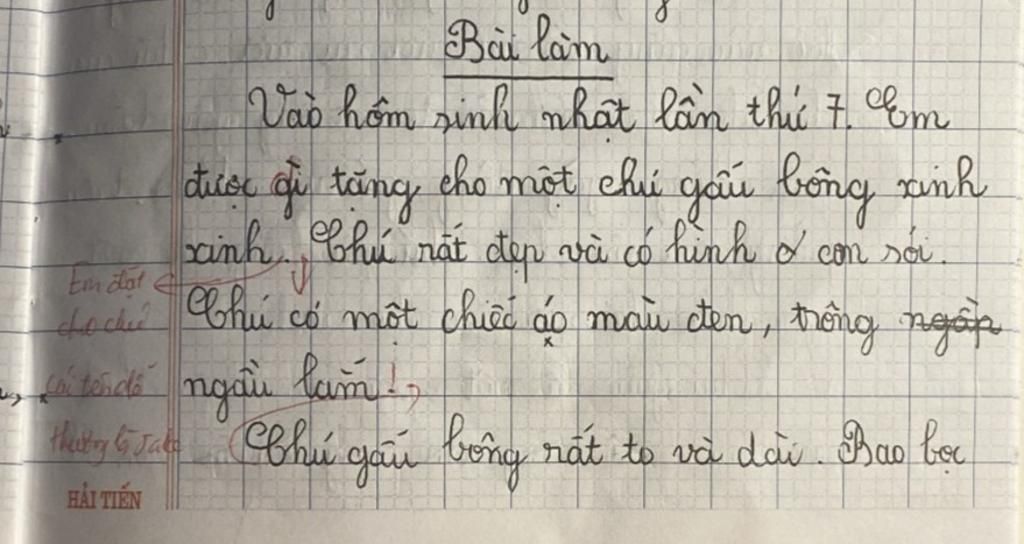 Bài làm
Vào hôm sinh nhật lần thứ 7. Em
được gì tặng cho một chú gấu bông xinh
xinh. Chú rất đẹp và có hình con sói.
Em đặt
Chú có một chiếc áo màu đen, trông ngầp
cho chú
ngầu lắm!
cái tên dễ
Chú gấu bông rất to và dài. Bao bọc
thương là
HẢI TIẾN